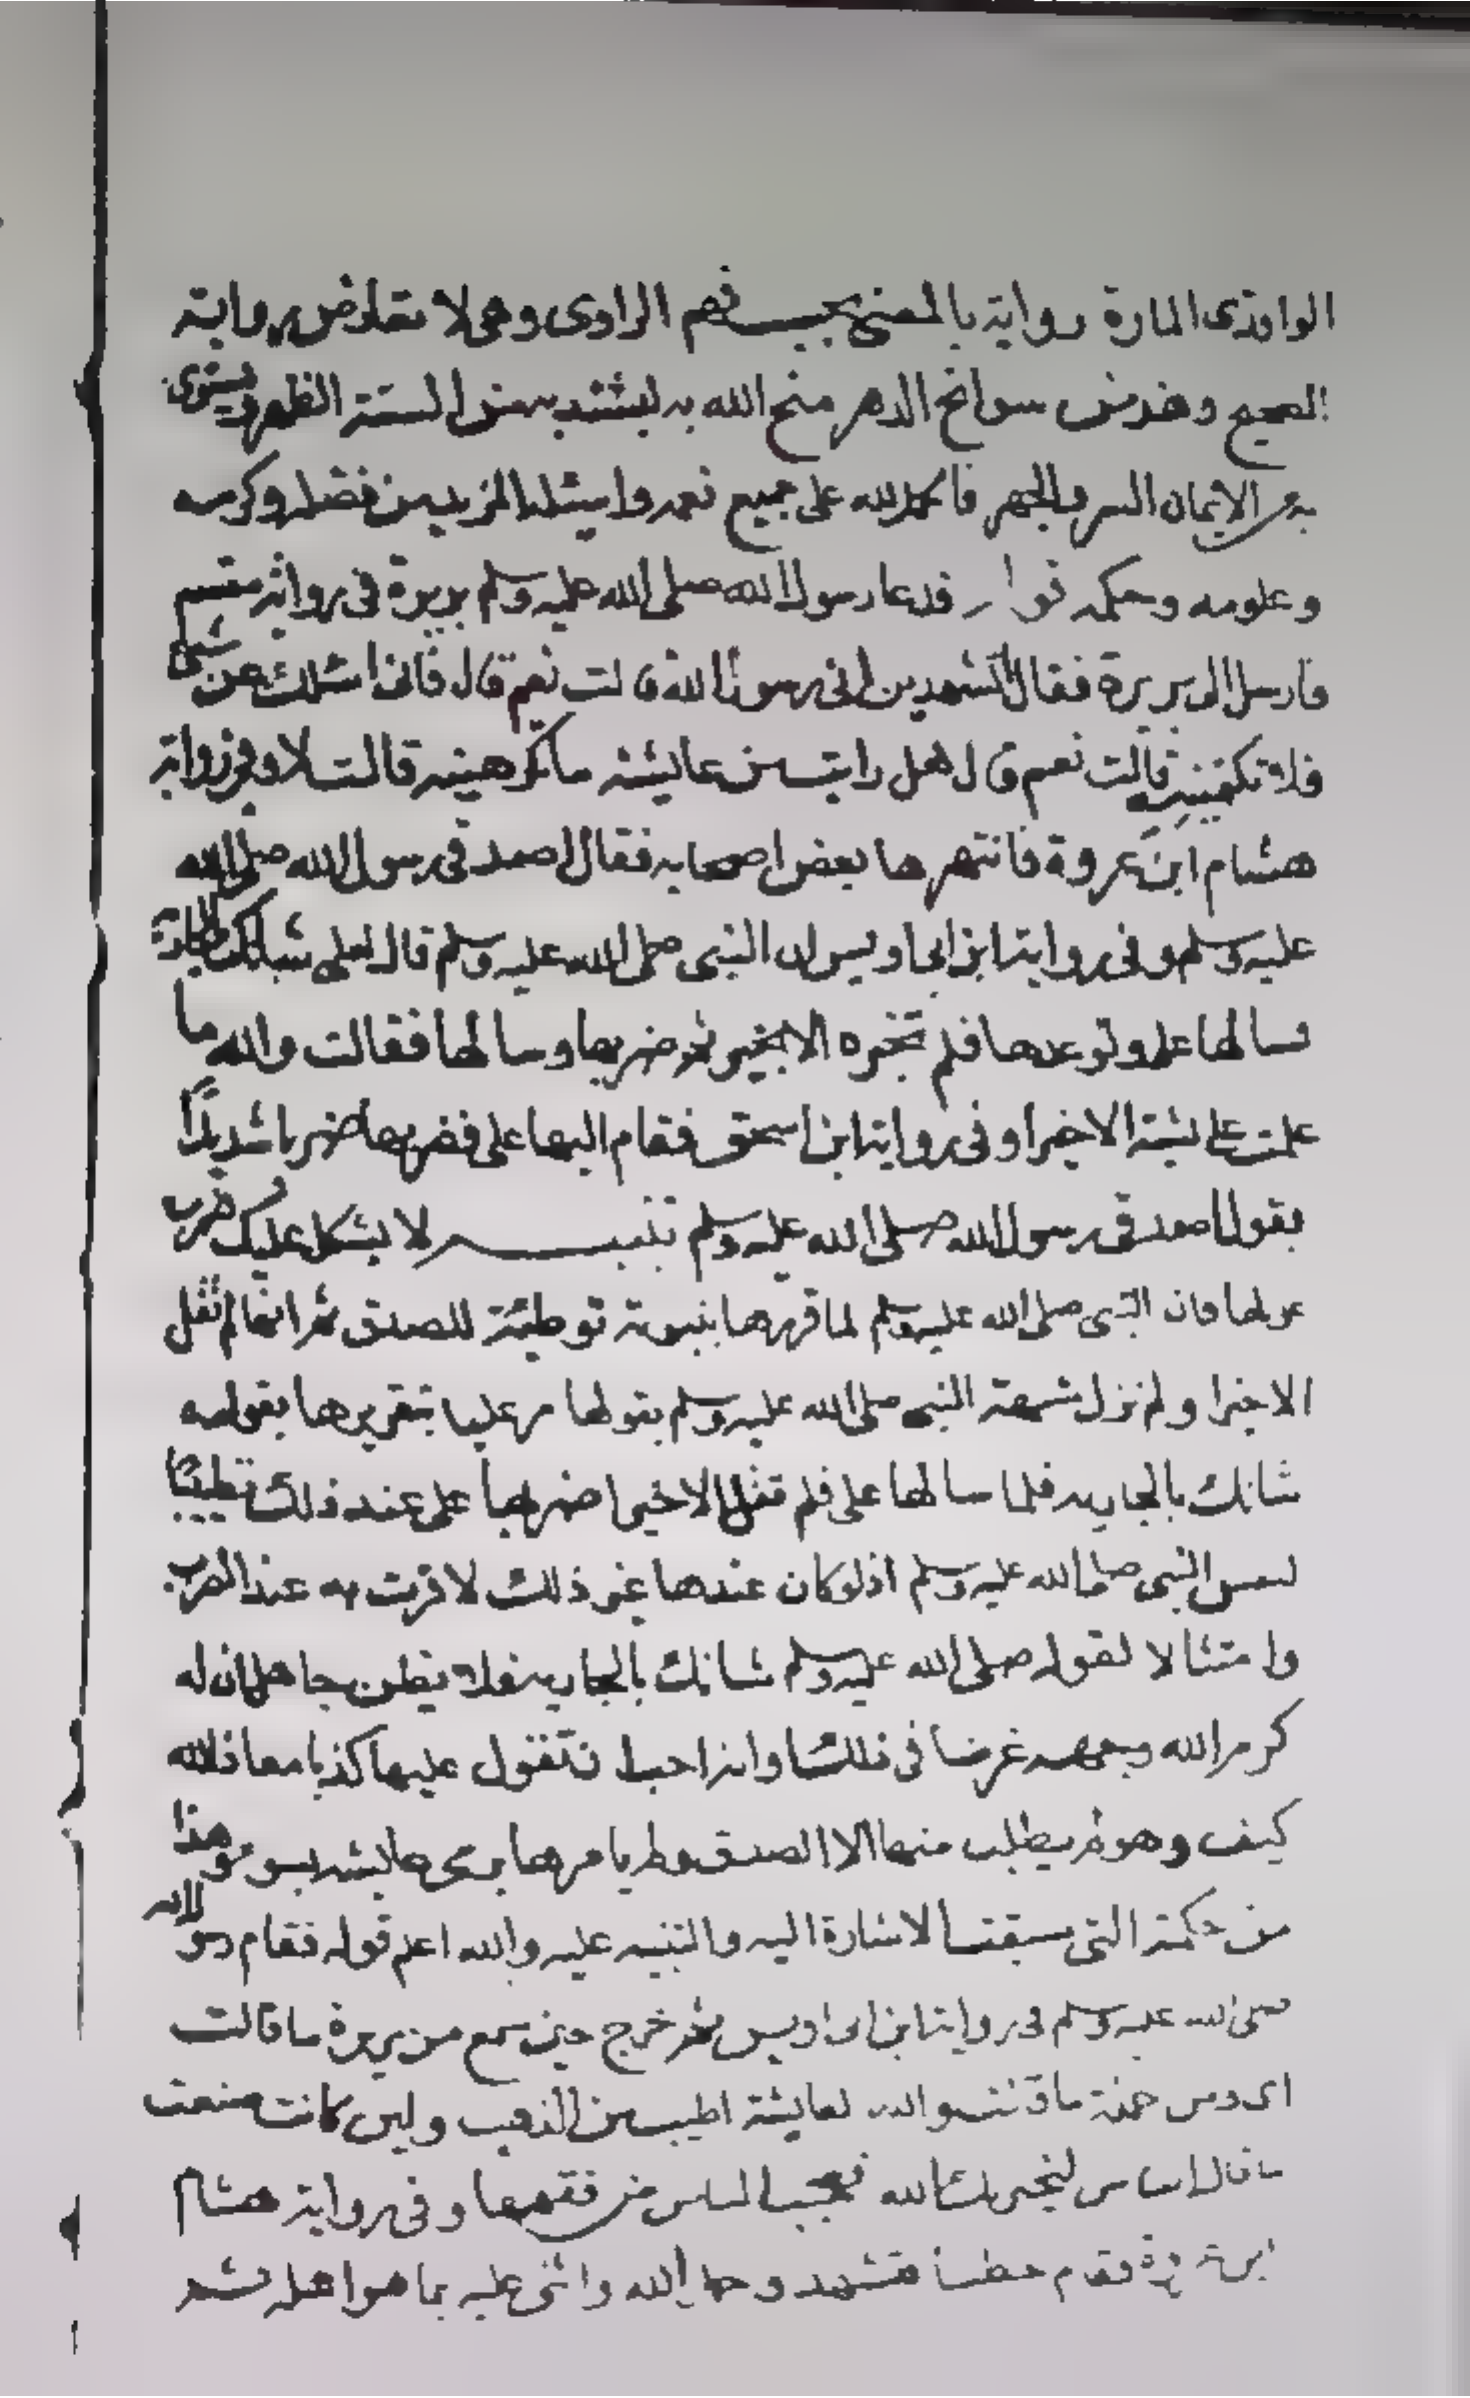 الواقدى المارة رواية بالمعنى بحسب فهم الراوى وهى لا تعارض رواية
الصحيح وهذ من سوانح الدهر منح الله به ليشتد به من السنة الظهر ويستوى
به الايمان السر والجهر فالحمد لله على جميع نعمه واسئله المزيد من فضله وكرمه
وعلومه وحكمه قوله فدعا رسول الله صلى الله عليه وسلم بريرة فى رواية مقسم
فارسل الى بريرة فقال اتشهدين انى رسول الله قالت نعم قال فانى اسئلك عن شئ
فلا تكتمينيه قالت نعم قال هل رايت من عايشة ما تكرهينه قالت لا وفى رواية
هشام ابن عروة فانتهرها بعض اصحابه فقال اصدقى رسول الله صلى الله
عليه وسلم وفى رواية ابن ابى اويس ان النبى صلى الله عليه وسلم قال لعلى شانك بالجارية
فسالها على وتوعدها فلم تخبره الا بخير ثم ضربها وسالها فقالت والله ما
علمت على عايشة الا خيرا وفى رواية ابن اسحق فقام اليها على فضربها ضربا شديدًا
يقول اصدقى رسول الله صلى الله عليه وسلم تنبيه لا يشكل عليك ضرب
على لها فان النبى صلى الله عليه وسلم لما قررها بنبوته توطئة للصدق ثم انها لم تقل
الا خيرا ولم تزل شبهة النبى صلى الله عليه وسلم بقولها امر عليا بتقريرها بقوله
شانك بالجارية فلما سالها على فلم تقل الا خيرا ضربها على عند ذلك تطييبًا
لنفس النبى صلى الله عليه وسلم اذ لو كان عندها غير ذلك لاقرت به عند الضرب
وامتثالا لقوله صلى الله عليه وسلم شانك بالجارية فلا يظن جاهل ان له
كرم الله وجهه غرضا فى ذلك وانه احب ان تتقول عليها كذبا معاذ الله
كيف وهو لم يطلب منها الا الصدق ولم يامرها برمى عايشة بسوء وهذا
من حكمة التى سبقت الاشارة اليه والتنبيه عليه والله اعلم قوله فقام رسول الله
صلى الله عليه وسلم فى رواية ابن ابى اويس ثم خرج حين سمع من بريرة ما قالت
اى ومن جملة ما قالت والله لعايشة اطيب من الذهب ولين كانت صنعت
ما قال الناس ليخبرنك الله فعجب الناس من فقهها وفى رواية هشام
ابن عروة فقام خطيبا فتشهد وحمد الله واثنى عليه بما هو اهله ثم